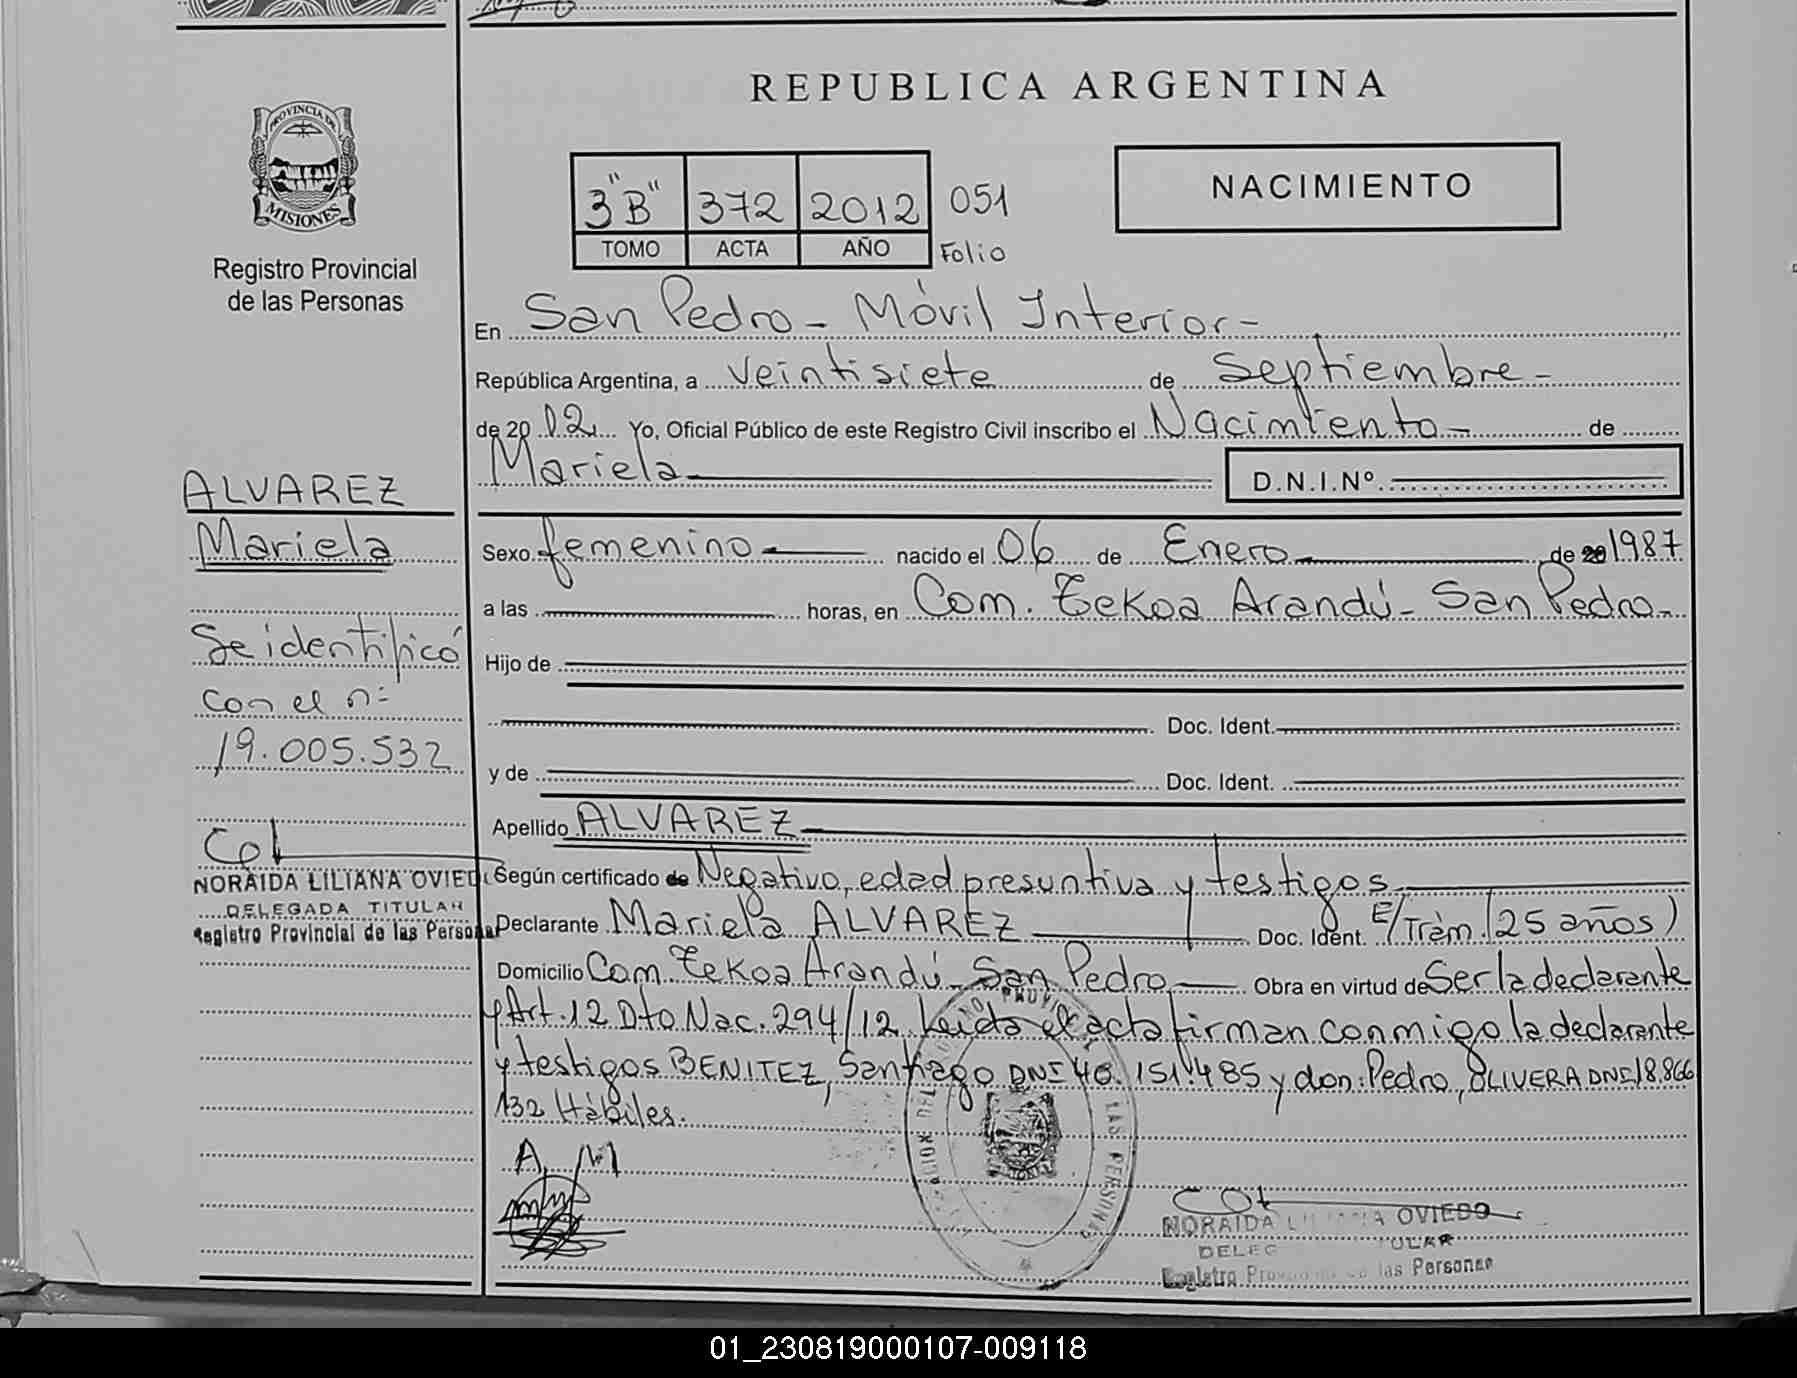 REPUBLICA ARGENTINA
PROVINCIA DE
MISIONES
Registro Provincial
de las Personas
NACIMIENTO
3 "B" 372 2012 051
TOMO ACTA AÑO Folio
En San Pedro - Móvil Interior -
República Argentina, a veintisiete de Septiembre -
de 20 12 Yo, Oficial Público de este Registro Civil inscribo el Nacimiento - de
Mariela D.N.I.Nº.
ALVAREZ
Mariela
Se identificó
con el nº
19.005.532
NORAIDA LILIANA OVIEDO
DELEGADA TITULAR
Registro Provincial de las Personas
Sexo femenino nacido el 06 de Enero de 20 1987
a las horas, en Com. Tekoa Arandú - San Pedro -
Hijo de
Doc. Ident.
y de Doc. Ident.
Apellido ALVAREZ
Según certificado de Negativo, edad presuntiva y testigos
Declarante Mariela ALVAREZ Doc. Ident. E/Trám. (25 años)
Domicilio Com. Tekoa Arandú - San Pedro Obra en virtud de Ser la declarante
y Art. 12 Dto Nac. 294/12. Leída el acta firman conmigo la declarante
y testigos BENITEZ, Santiago DNI 40.151.485 y don: Pedro, OLIVERA DNI 18.866
132 Hábiles.
A. M
LAS PERSONAS
NORAIDA LILIANA OVIEDO
DELEGADA TITULAR
Registro Provincial de las Personas
01_230819000107-009118